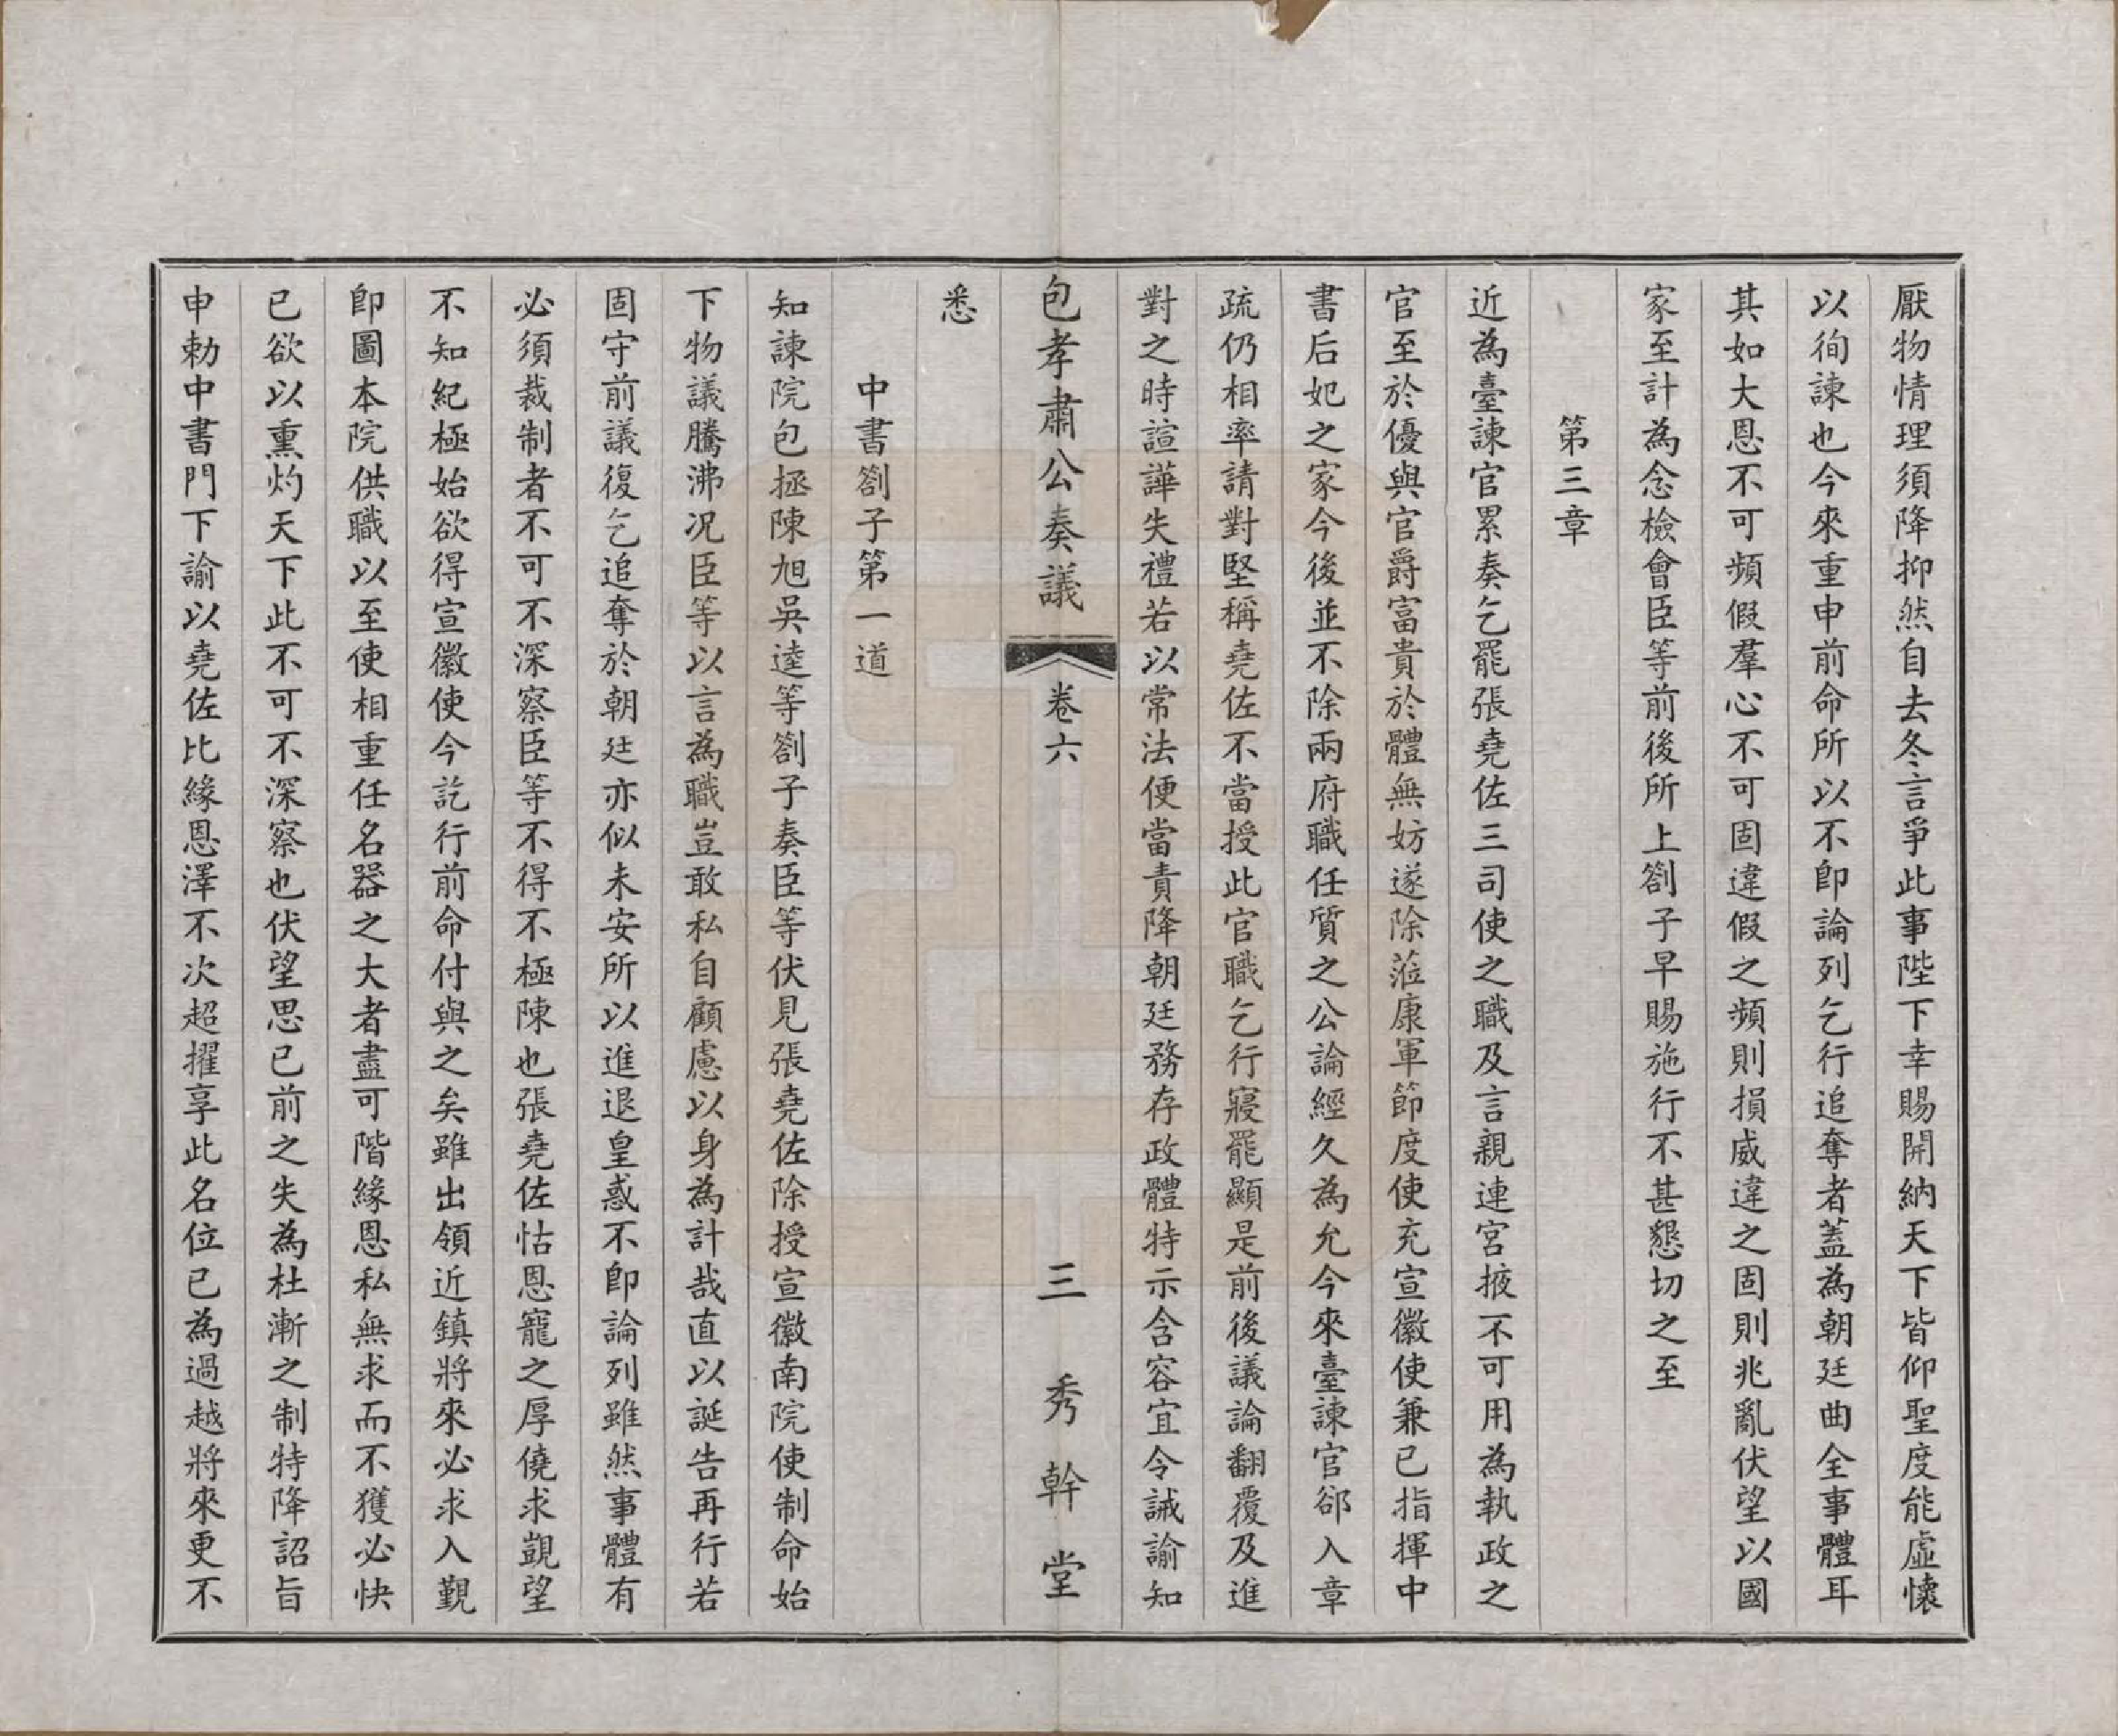 厭物情理須降抑然自去冬言爭此事陛下幸賜開納天下皆仰聖度能虛懷
以徇諫也今來重申前命所以不卽論列乞行追奪者蓋為朝廷曲全事體耳
其如大恩不可頻假羣心不可固違假之頻則損威違之固則兆亂伏望以國
家至計為念檢會臣等前後所上劄子早賜施行不甚懇切之至
第三章
近為臺諫官累奏乞罷張堯佐三司使之職及言親連宮掖不可用為執政之
官至於優與官爵富貴於體無妨遂除蒞康軍節度使充宣徽使兼已指揮中
書后妃之家今後並不除兩府職任質之公論經久為允今來臺諫官郤入章
疏仍相率請對堅稱堯佐不當授此官職乞行寢罷顯是前後議論翻覆及進
對之時諠譁失禮若以常法便當責降朝廷務存政體特示含容宜令誡諭知
包孝肅公奏議
卷六
三
秀幹堂
悉
中書劄子第一道
知諫院包拯陳旭吳逵等劄子奏臣等伏見張堯佐除授宣徽南院使制命始
下物議騰沸况臣等以言為職豈敢私自顧慮以身為計哉直以誕告再行若
固守前議復乞追奪於朝廷亦似未安所以進退皇惑不卽論列雖然事體有
必須裁制者不可不深察臣等不得不極陳也張堯佐怙恩寵之厚僥求覬望
不知紀極始欲得宣徽使今訖行前命付與之矣雖出領近鎮將來必求入覲
卽圖本院供職以至使相重任名器之大者盡可階緣恩私無求而不獲必快
已欲以熏灼天下此不可不深察也伏望思已前之失為杜漸之制特降詔旨
申勅中書門下諭以堯佐比緣恩澤不次超擢享此名位已為過越將來更不